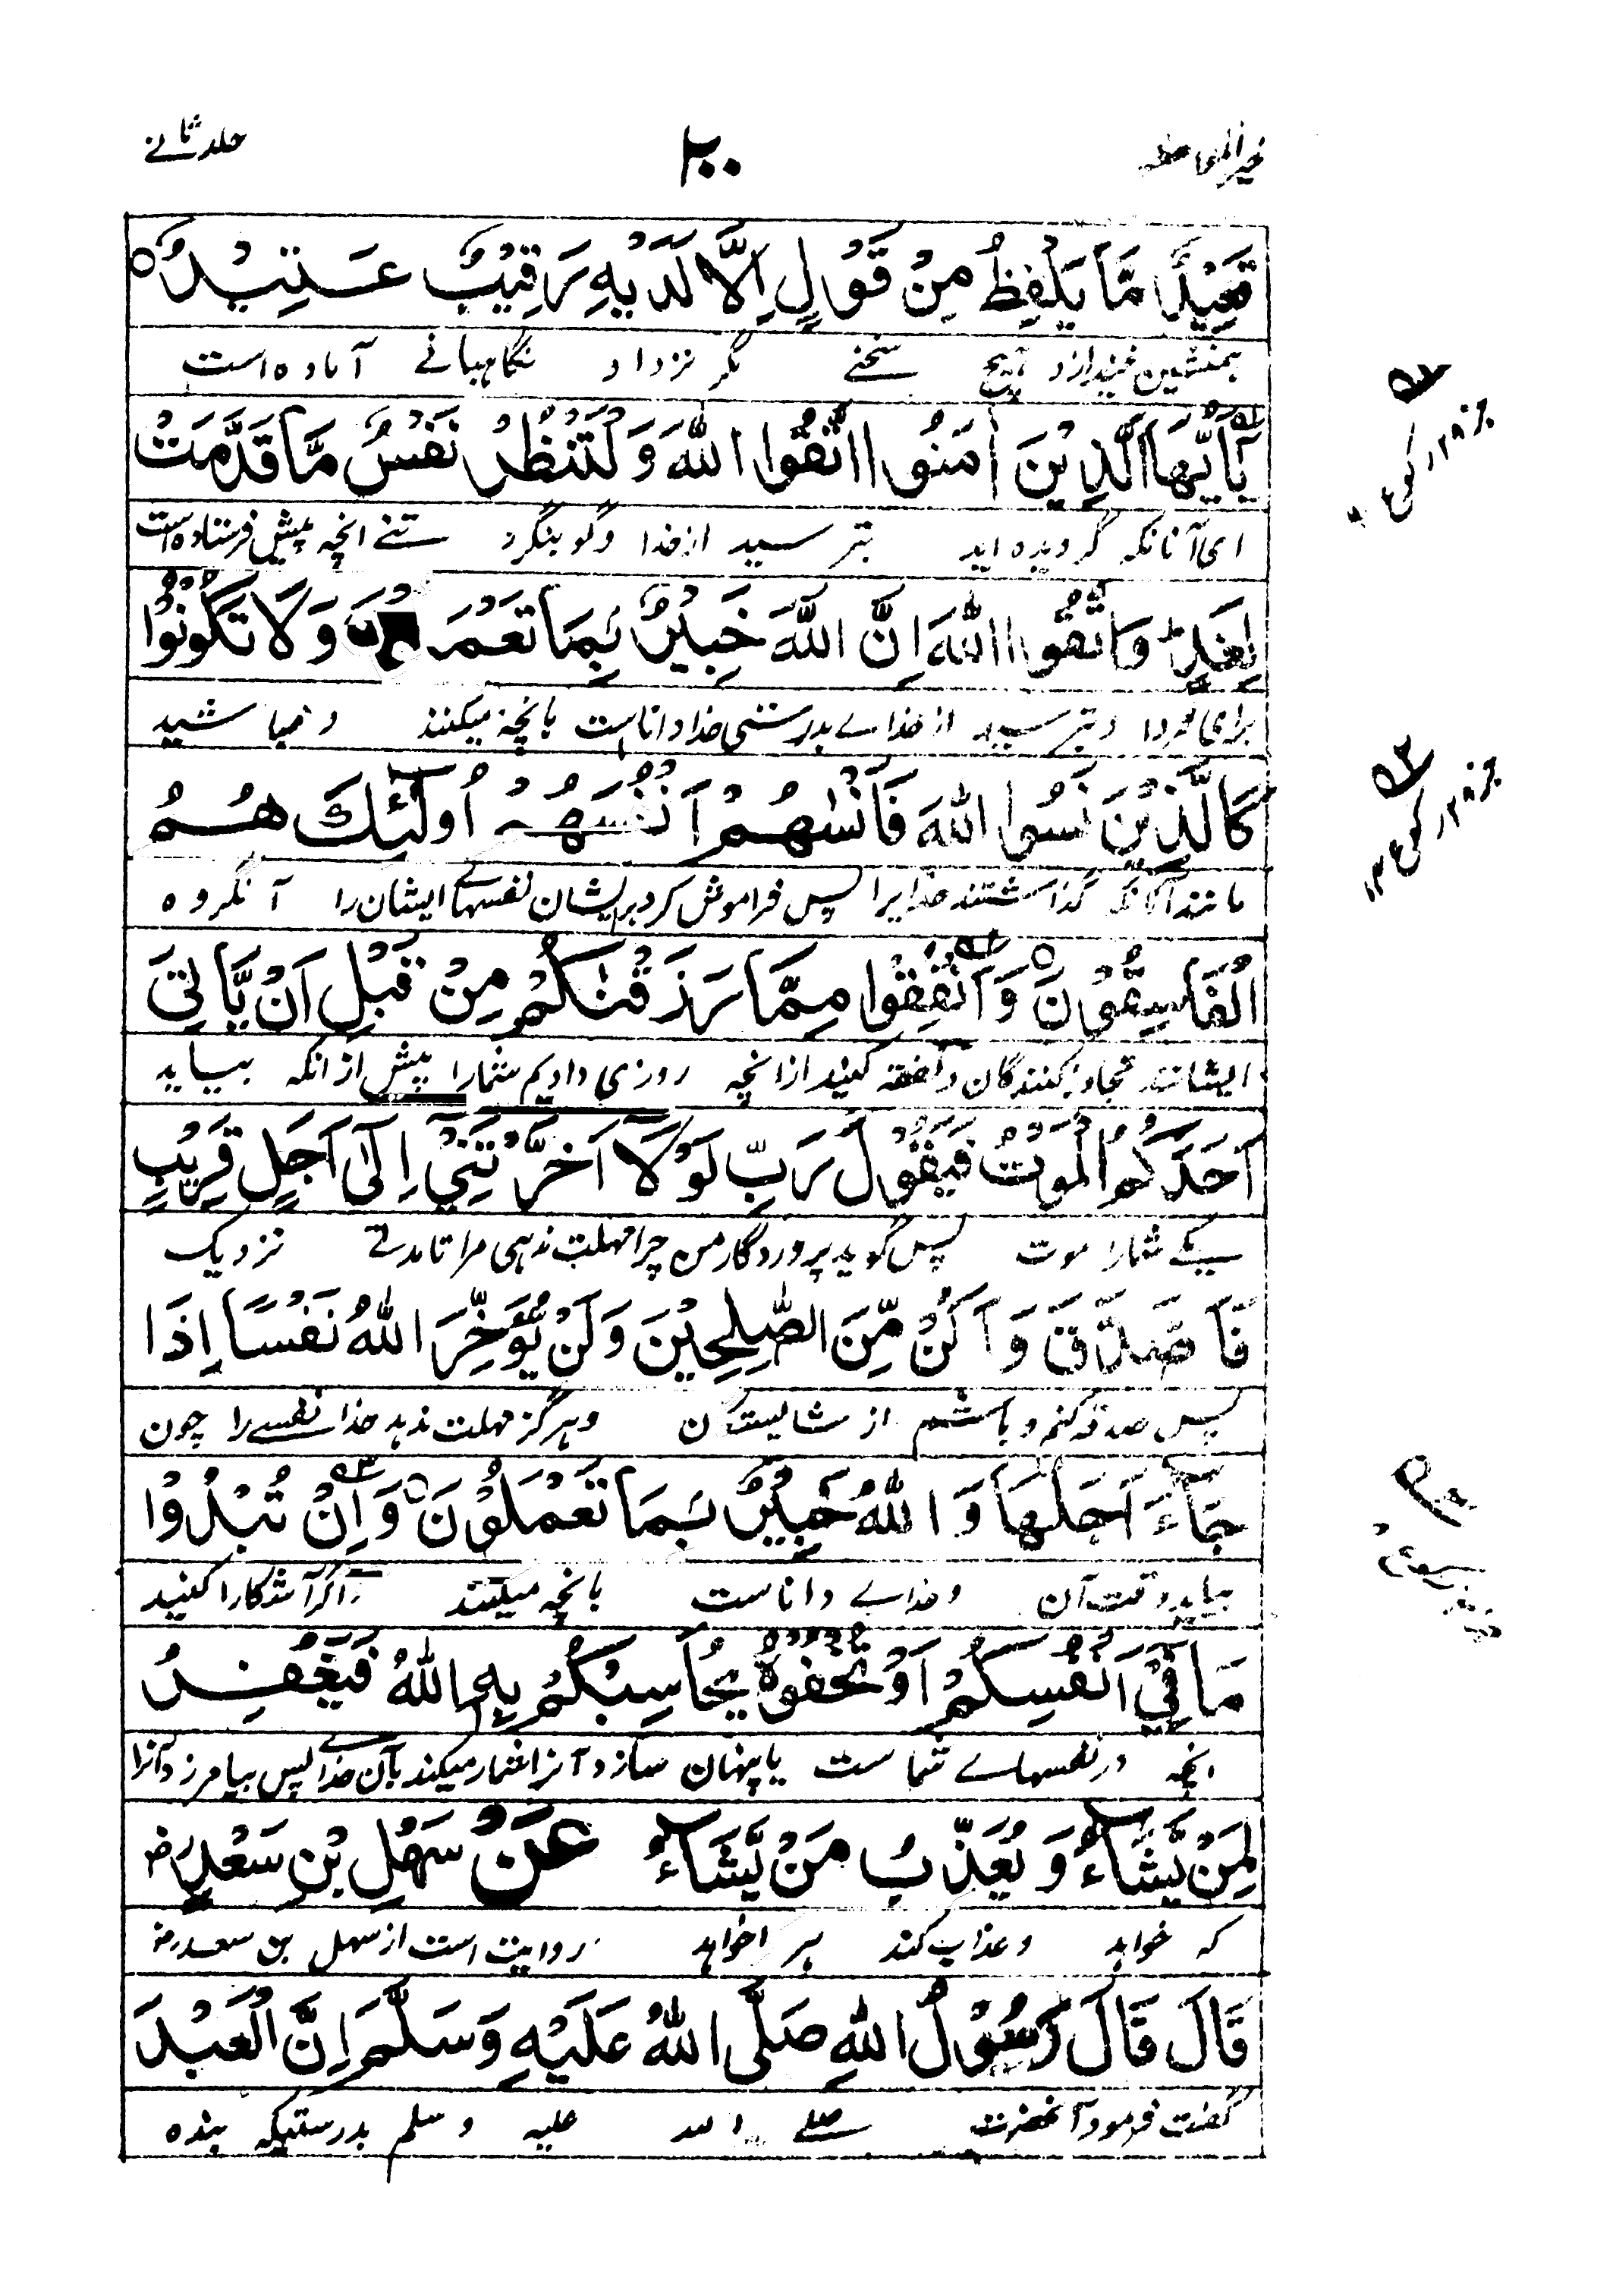 خیر المواعظ ۲۰۰ جلد ثانے
قَعِيْدٌ مَّا يَلْفِظُ مِنْ قَوْلٍ اِلَّا لَدَيْهِ رَقِيْبٌ عَتِيْدٌ ○
ہمنشین نمیندازد ہیچ سخنے مگر نزد او نگاہبانے آمادہ است
يٰٓاَيُّهَا الَّذِيْنَ اٰمَنُوا اتَّقُوا اللّٰهَ وَلْتَنْظُرْ نَفْسٌ مَّا قَدَّمَتْ
ای آنانکہ گرویدہ اید بترسید از خدا وگو بنگرد تنے انچہ پیش فرستادہ است
لِغَدٍ ۚ وَاتَّقُوا اللّٰهَ اِنَّ اللّٰهَ خَبِيْرٌۢ بِمَا وَلَا تَكُوْنُوْا
برای فردا و بترسید از خداے بدرستی خدا داناست بانچہ میکنند و مباشید
كَالَّذِيْنَ نَسُوا اللّٰهَ فَاَنْسٰهُمْ اَنْفُسَهُمْ اُولٰٓئِكَ هُمُ
مانند آنانکہ گذاشتند خدایرا پس فراموش کرد برایشان نفسہاے ایشان را آنگروہ
الْفَاسِقُوْنَ ○ وَاَنْفِقُوْا مِمَّا رَزَقْنٰكُمْ مِنْ قَبْلِ اَنْ يَّاْتِيَ
ایشانند تجاوز کنندگان و نفقہ کنید ازانچہ روزی دادیم شمارا پیش از انکہ بیاید
اَحَدَكُمُ الْمَوْتُ فَيَقُوْلَ رَبِّ لَوْلَآ اَخَّرْتَنِيْ اِلٰٓى اَجَلٍ قَرِيْبٍ
یکے شمارا موت پس گوید پروردگار من چرا مہلت ندہی مرا تا مدتے نزدیک
فَاَصَّدَّقَ وَاَكُنْ مِّنَ الصّٰلِحِيْنَ وَلَنْ يُّؤَخِّرَ اللّٰهُ نَفْسًا اِذَا
پس صدقہ کنم و باشم از شائستگان و ہرگز مہلت ندہد خداے نفسے را چون
جَآءَ اَجَلُهَا وَاللّٰهُ خَبِيْرٌۢ بِمَا تَعْمَلُوْنَ ○ وَاِنْ تُبْدُوْا
بیاید وقت آن و خداے داناست بانچہ میکنند و اگر آشکارا کنید
مَا فِيْٓ اَنْفُسِكُمْ اَوْ تُخْفُوْهُ يُحَاسِبْكُمْ بِهِ اللّٰهُ فَيَغْفِرُ
انچہ در نفسہاے شماست یا پنہان سازد آنرا شمار میکند بآن خداے پس بیامرزد آنرا
لِمَنْ يَّشَآءُ وَيُعَذِّبُ مَنْ يَّشَآءُ عَنْ سَهْلِ بْنِ سَعْدٍ رض
کہ خواہد و عذاب کند ہر اخواہد روایت است از سہل بن سعد رض
قَالَ قَالَ رَسُوْلُ اللّٰهِ صَلَّى اللّٰهُ عَلَيْهِ وَسَلَّمَ اِنَّ الْعَبْدَ
گفت فرمود آنحضرت صلے اللہ علیہ وسلم بدرستیکہ بندہ
جز ۲۸ رکوع
جز ۲۸ رکوع ۱۳